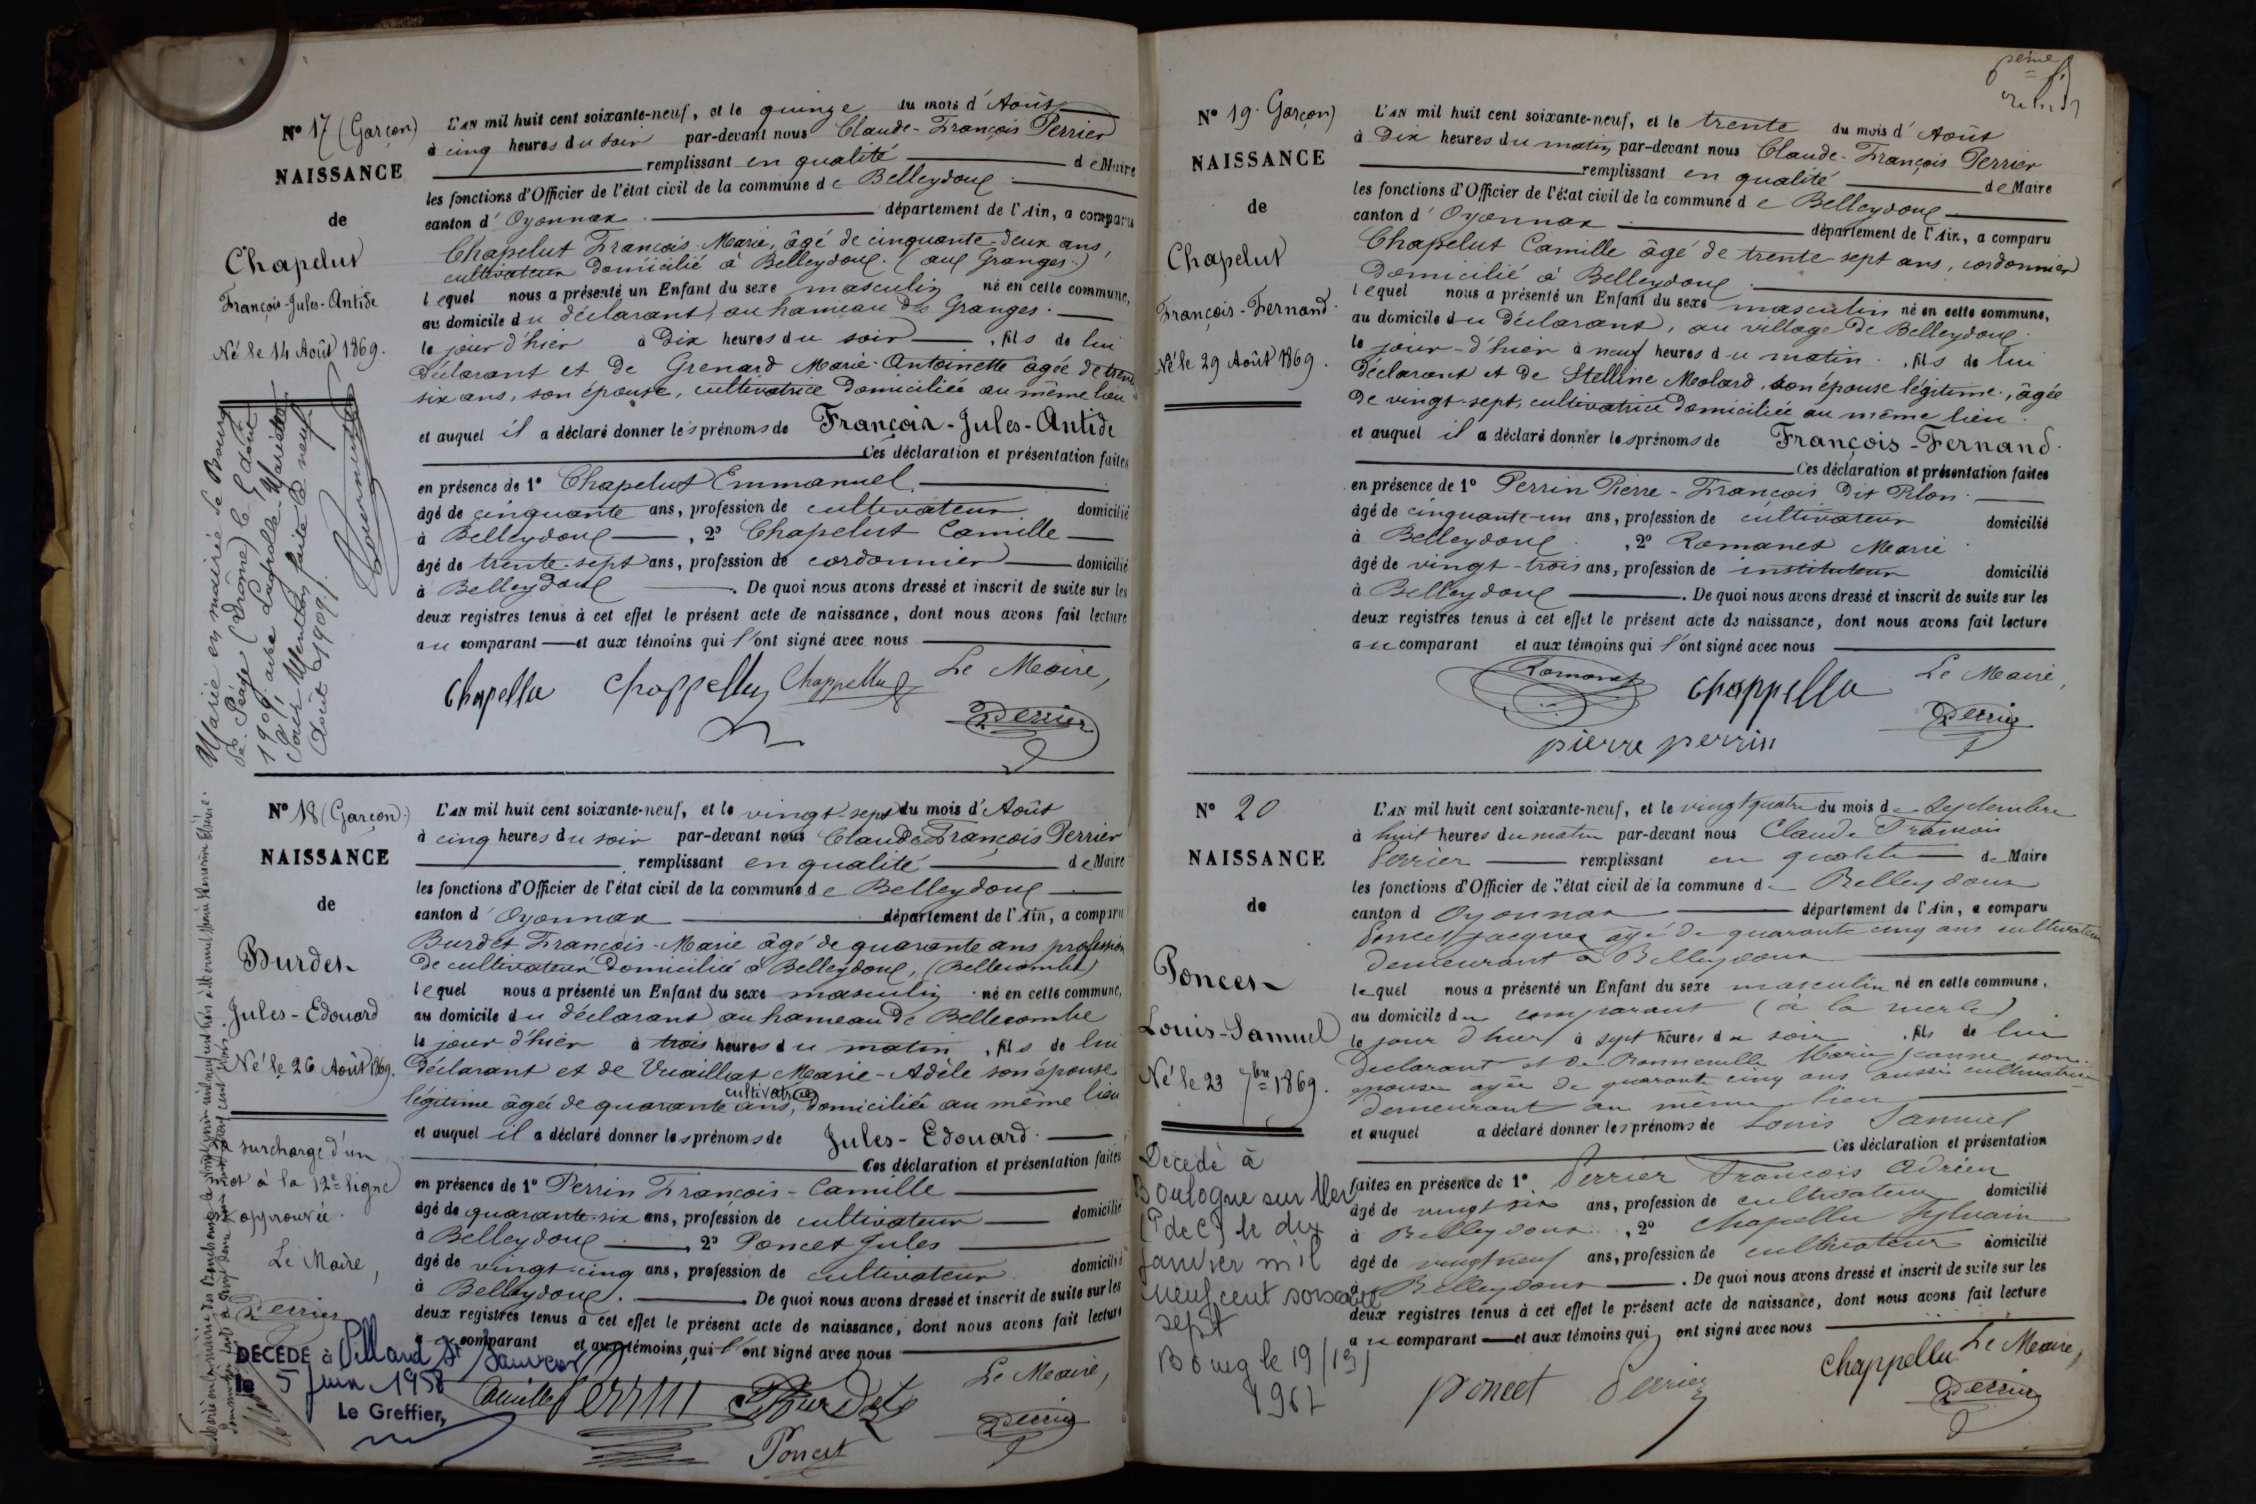 N° 17 (Garçon)
NAISSANCE
de
Chapelut
François-Jules-Antide
Né le 14 Août 1869.
Marié en mairie de Bourg
de Péage (Drôme) le 9 Août
1909 avec
faite le neuf
Août 1909.
L'AN mil huit cent soixante-neuf, et le quinze du mois d'Août
à cinq heures du soir par-devant nous Claude-François Perrier
remplissant en qualité de Maire
les fonctions d'Officier de l'état civil de la commune de Belleydoux
canton d'Oyonnax département de l'Ain, a comparu
Chapelut François-Marie, âgé de cinquante-deux ans,
cultivateur domicilié à Belleydoux. (aux Granges.)
lequel nous a présenté un Enfant du sexe masculin né en cette commune,
au domicile du déclarant, au hameau des Granges.
le jour d'hier à Dix heures du soir, fils de lui
déclarant et de Grenard Marie-Antoinette âgée de trente
six ans, son épouse, cultivatrice domiciliée au même lieu
et auquel il a déclaré donner les prénoms de François-Jules-Antide
Ces déclaration et présentation faites
en présence de 1° Chapelut Emmanuel
âgé de cinquante ans, profession de cultivateur domicilié
à Belleydoux, 2° Chapelut Camille
âgé de trente-sept ans, profession de cordonnier domicilié
à Belleydoux. De quoi nous avons dressé et inscrit de suite sur les
deux registres tenus à cet effet le présent acte de naissance, dont nous avons fait lecture
au comparant et aux témoins qui l'ont signé avec nous
Le Maire,
Chapellu Chappelluz Chappelluz
Perrier
N° 18 (Garçon)
NAISSANCE
de
Burdet
Jules-Edouard
Né le 26 Août 1869.
surcharge d'un
mot à la 12e ligne
approuvée.
Le Maire,
Perrier
DÉCÉDÉ à Villard St Sauveur
le 5 juin 1958
Le Greffier,
L'AN mil huit cent soixante-neuf, et le vingt-sept du mois d'Août
à cinq heures du soir par-devant nous Claude-François Perrier
remplissant en qualité de Maire
les fonctions d'Officier de l'état civil de la commune de Belleydoux
canton d'Oyonnax département de l'Ain, a comparu
Burdet François-Marie âgé de quarante ans profession
de cultivateur domicilié à Belleydoux, (Bellecombe)
lequel nous a présenté un Enfant du sexe masculin né en cette commune,
au domicile du déclarant au hameau de Bellecombe
le jour d'hier à trois heures du matin, fils de lui
déclarant et de Vuaillat Marie-Adèle son épouse
cultivatrice
légitime âgée de quarante ans, domiciliée au même lieu
et auquel il a déclaré donner les prénoms de Jules-Edouard.
Ces déclaration et présentation faites
en présence de 1° Perrin François-Camille
âgé de quarante-six ans, profession de cultivateur domicilié
à Belleydoux, 2° Poncet Jules
âgé de vingt-cinq ans, profession de cultivateur domicilié
à Belleydoux. De quoi nous avons dressé et inscrit de suite sur les
deux registres tenus à cet effet le présent acte de naissance, dont nous avons fait lecture
au comparant et aux témoins qui l'ont signé avec nous
Le Maire,
Camille Perrin Burdet
Perrier
Poncet
N° 19. Garçon)
NAISSANCE
de
Chapelut
François-Fernand.
Né le 29 Août 1869.
L'AN mil huit cent soixante-neuf, et le trente du mois d'Août
à Dix heures du matin par-devant nous Claude-François Perrier
remplissant en qualité de Maire
les fonctions d'Officier de l'état civil de la commune de Belleydoux
canton d'Oyonnax département de l'Ain, a comparu
Chapelut Camille âgé de trente-sept ans, cordonnier
domicilié à Belleydoux.
lequel nous a présenté un Enfant du sexe masculin né en cette commune,
au domicile du déclarant, au village de Belleydoux.
le jour d'hier à neuf heures du matin, fils de lui
déclarant et de Stelline Molard, son épouse légitime, âgée
de vingt-sept, cultivatrice domiciliée au même lieu.
et auquel il a déclaré donner les prénoms de François-Fernand.
Ces déclaration et présentation faites
en présence de 1° Perrin Pierre-François dit Pilon.
âgé de cinquante-un ans, profession de cultivateur domicilié
à Belleydoux, 2° Romanet Marie
âgé de vingt-trois ans, profession de instituteur domicilié
à Belleydoux. De quoi nous avons dressé et inscrit de suite sur les
deux registres tenus à cet effet le présent acte de naissance, dont nous avons fait lecture
au comparant et aux témoins qui l'ont signé avec nous
Le Maire,
Romanet Chappellu
Perrier
pierre perrin
N° 20
NAISSANCE
de
Poncet
Louis-Samuel
Né le 23 7bre 1869.
Décédé à
Boulogne sur Mer
(P de C) le dix
janvier mil
neuf cent soixante
sept
Bourg le 19/1
1967
L'AN mil huit cent soixante-neuf, et le vingt quatre du mois de Septembre
à huit heures du matin par-devant nous Claude François
Perrier remplissant en qualité de Maire
les fonctions d'Officier de l'état civil de la commune de Belleydoux
canton d Oyonnax département de l'Ain, a comparu
Poncet Jacques âgé de quarante cinq ans cultivateur
demeurant à Belleydoux
lequel nous a présenté un Enfant du sexe masculin né en cette commune,
au domicile du comparant (à la
le jour d'hier à sept heures du soir, fils de lui
déclarant et de Marie Jeanne son
épouse âgée de quarante cinq ans aussi cultivatrice
demeurant au même lieu
et auquel a déclaré donner les prénoms de Louis Samuel
Ces déclaration et présentation
faites en présence de 1° Perrier François Adrien
âgé de vingt six ans, profession de cultivateur domicilié
à Belleydoux, 2° Chapellu Sylvain
âgé de vingt neuf ans, profession de cultivateur domicilié
à Belleydoux. De quoi nous avons dressé et inscrit de suite sur les
deux registres tenus à cet effet le présent acte de naissance, dont nous avons fait lecture
au comparant et aux témoins qui ont signé avec nous
Le Maire,
Poncet Perrier Chappellu
Perrier